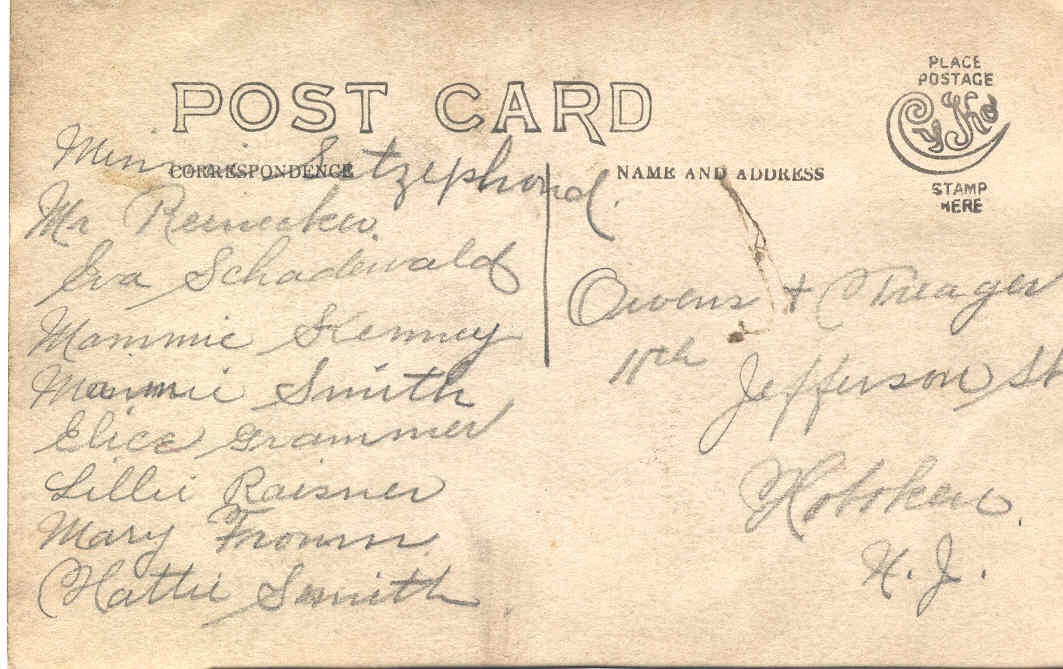 POST CARD
CORRESPONDENCE
NAME AND ADDRESS
PLACE
POSTAGE
CyKo
STAMP
HERE
Minnie
Mr Reinecker.
Eva Schadewald
Mammie Kenney
Mammie Smith
Elice Grammer
Lillie Raisner
Mary Fromm
Hattie Smith
Owens + Treager
11th Jefferson St
Hoboken
N. J.